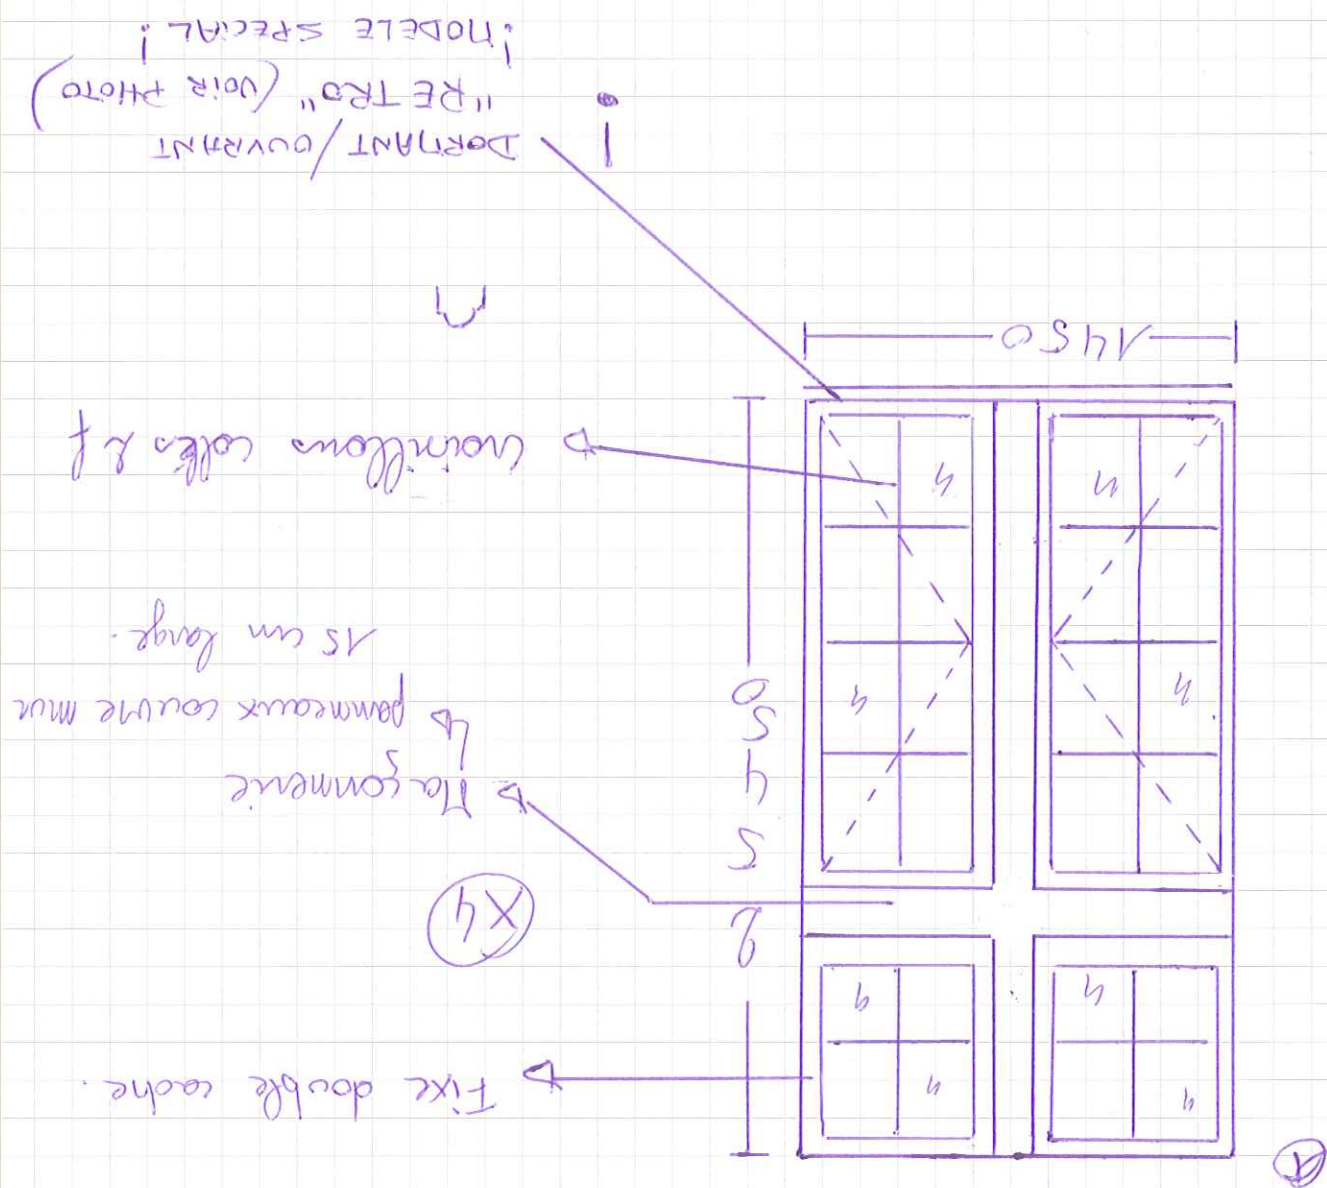 Fixe double cadre.
4 4
4 4
X4
Maçonnerie
panneaux couvre mur
15 cm large.
2
5
4
5
0
4 4
croisillons collés 2 f
4 4
1450
DORMANT/OUVRANT
"RETRO" (VOIR PHOTO)
!MODELE SPECIAL!
!